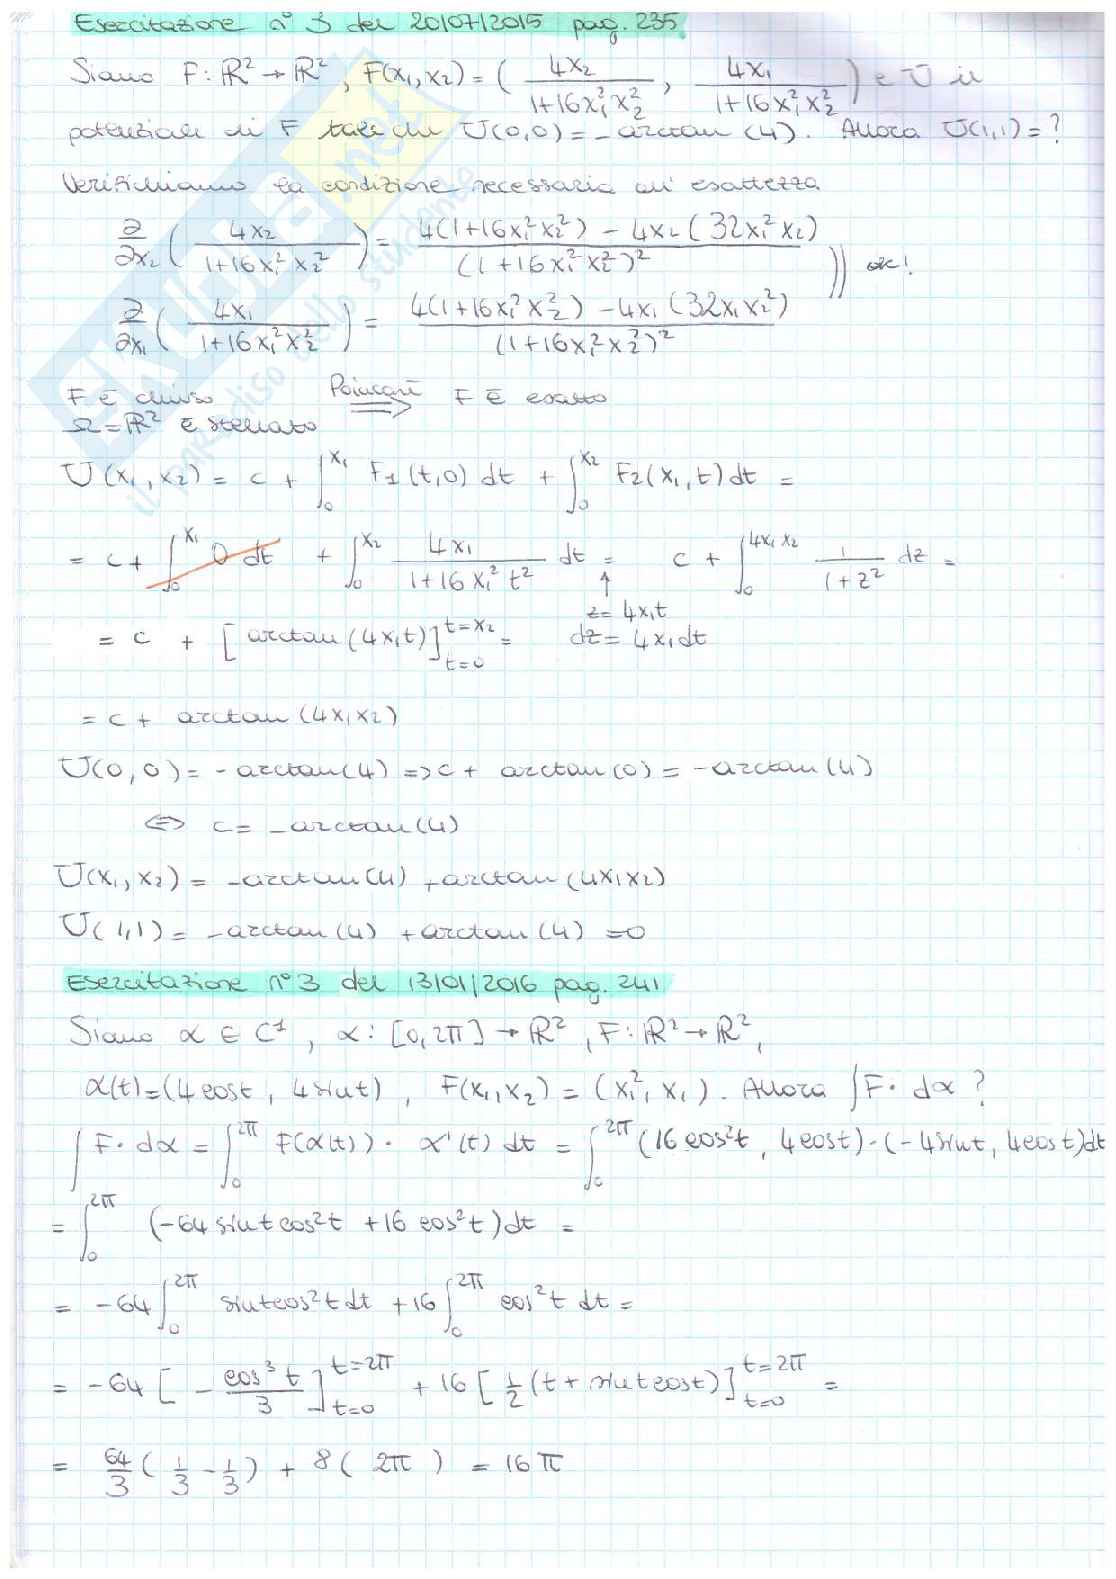 Esercitazione n° 3 del 20/07/2015 pag. 235
Siano F: ℝ² → ℝ², F(x₁,x₂) = ( 4x₂ / (1+16x₁²x₂²) , 4x₁ / (1+16x₁²x₂²) ) e U il
potenziale di F tale che U(0,0) = -arctan (4). Allora U(1,1) = ?
Verifichiamo la condizione necessaria all' esattezza
∂/∂x₂ ( 4x₂ / (1+16x₁²x₂²) ) = ( 4(1+16x₁²x₂²) - 4x₂ (32x₁²x₂) ) / (1+16x₁²x₂²)²
ok!
∂/∂x₁ ( 4x₁ / (1+16x₁²x₂²) ) = ( 4(1+16x₁²x₂²) - 4x₁ (32x₁x₂²) ) / (1+16x₁²x₂²)²
F è chiuso Poincaré ⟹ F è esatto
Ω = ℝ² è stellato
U(x₁,x₂) = c + ∫₀^x₁ F₁(t,0) dt + ∫₀^x₂ F₂(x₁,t) dt =
= c + ∫₀^x₁ 0 dt + ∫₀^x₂ 4x₁ / (1+16x₁²t²) dt = c + ∫₀^4x₁x₂ 1/(1+z²) dz =
↑
z = 4x₁t
= c + [ arctan (4x₁t) ]_{t=0}^{t=x₂} = dz = 4x₁dt
= c + arctan (4x₁x₂)
U(0,0) = -arctan(4) => c + arctan(0) = -arctan(4)
⇔ c = -arctan(4)
U(x₁,x₂) = -arctan(4) + arctan (4x₁x₂)
U(1,1) = -arctan(4) + arctan(4) = 0
Esercitazione n° 3 del 13/01/2016 pag. 241
Siano α ∈ C¹, α: [0,2π] → ℝ², F: ℝ² → ℝ²,
α(t) = (4cost, 4sint), F(x₁,x₂) = (x₁², x₁). Allora ∫F· dα ?
∫ F· dα = ∫₀^2π F(α(t)) · α'(t) dt = ∫₀^2π (16cos²t, 4cost)·(-4sint, 4cost)dt
= ∫₀^2π (-64sintcos²t + 16cos²t) dt =
= -64 ∫₀^2π sintcos²t dt + 16 ∫₀^2π cos²t dt =
= -64 [ - cos³t / 3 ]_{t=0}^{t=2π} + 16 [ 1/2 (t + sintcost) ]_{t=0}^{t=2π} =
= 64/3 ( 1/3 - 1/3 ) + 8 ( 2π ) = 16π
SKUOLA.net
il paradiso dello studente